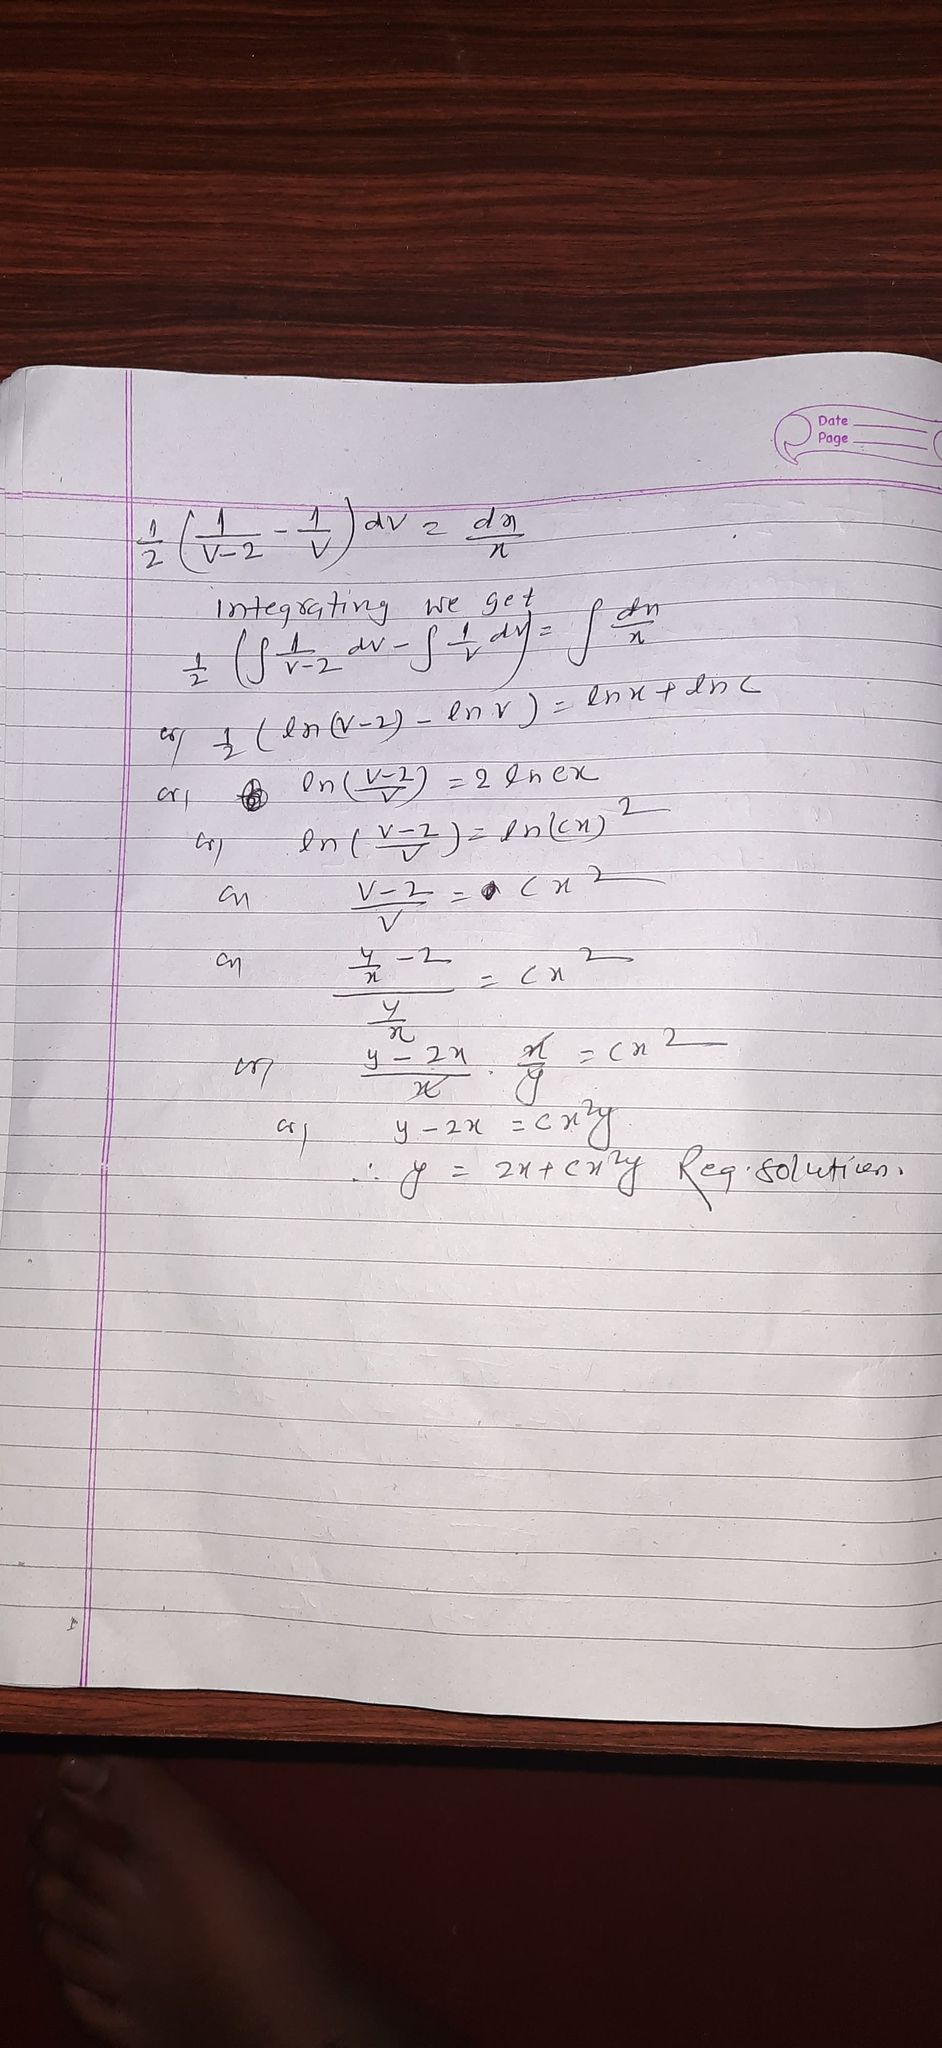 Date
Page
1/2 (1/(v-2) - 1/v) dv = dx/x
Integrating we get
1/2 (∫ 1/(v-2) dv - ∫ 1/v dv) = ∫ dx/x
or, 1/2 (ln(v-2) - ln v) = ln x + ln c
or, ln((v-2)/v) = 2 ln cx
or, ln((v-2)/v) = ln(cx)²
or, (v-2)/v = cx²
or, (y/x - 2)/(y/x) = cx²
or, (y-2x)/x · x/y = cx²
or, y - 2x = cx²y
∴ y = 2x + cx²y Req. solution.